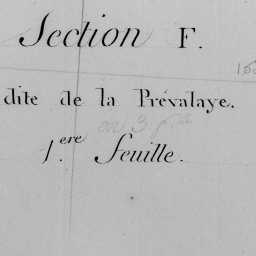 Section F.
dite de la Prévalaye.
en 3 p
1.ere feuille.